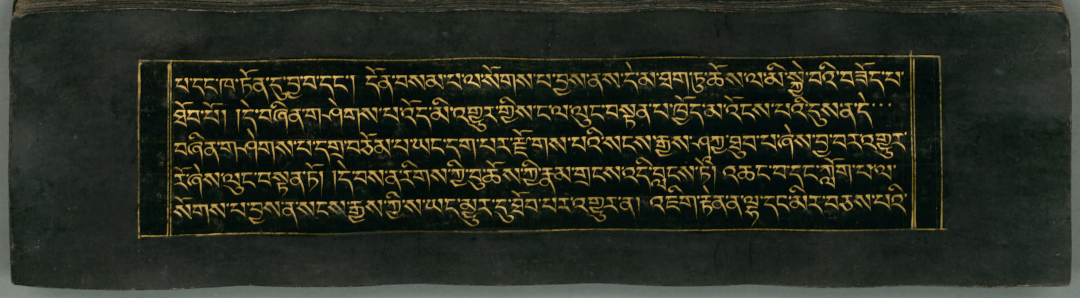 པ་དང་ཁ་ཏོན་དུ་བྱ་བ་དང་། དོན་བསམ་པ་ལ་སོགས་པ་བྱས་ནས་དེ་མ་ཐག་ཏུ་ཆོས་ལ་མི་སྐྱེ་བའི་བཟོད་པ་
ཐོབ་པོ། །དེ་བཞིན་གཤེགས་པ་འོད་མི་འགྱུར་གྱིས་ང་ལ་ལུང་བསྟན་པ་ཁྱོད་མ་འོངས་པའི་དུས་ན་དེ་
བཞིན་གཤེགས་པ་དགྲ་བཅོམ་པ་ཡང་དག་པར་རྫོགས་པའི་སངས་རྒྱས་ཤཱཀྱ་ཐུབ་པ་ཞེས་བྱ་བར་འགྱུར་
རོ་ཞེས་ལུང་བསྟན་ཏོ། །དེ་བས་ན་རིགས་ཀྱི་བུ་ཆོས་ཀྱི་རྣམ་གྲངས་འདི་བླངས་ཏེ། འཆང་བ་དང་ཀློག་པ་ལ་
སོགས་པ་བྱས་ན་སངས་རྒྱས་ཀྱིས་ཡང་མྱུར་དུ་ཐོབ་པར་འགྱུར་ན། འཇིག་རྟེན་ན་ལྷ་དང་མིར་བཅས་པའི་